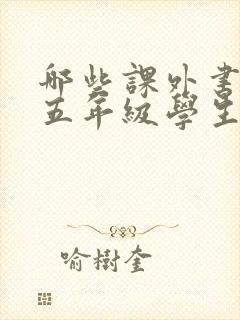 哪些課外書
五年級學生
喻樹奎